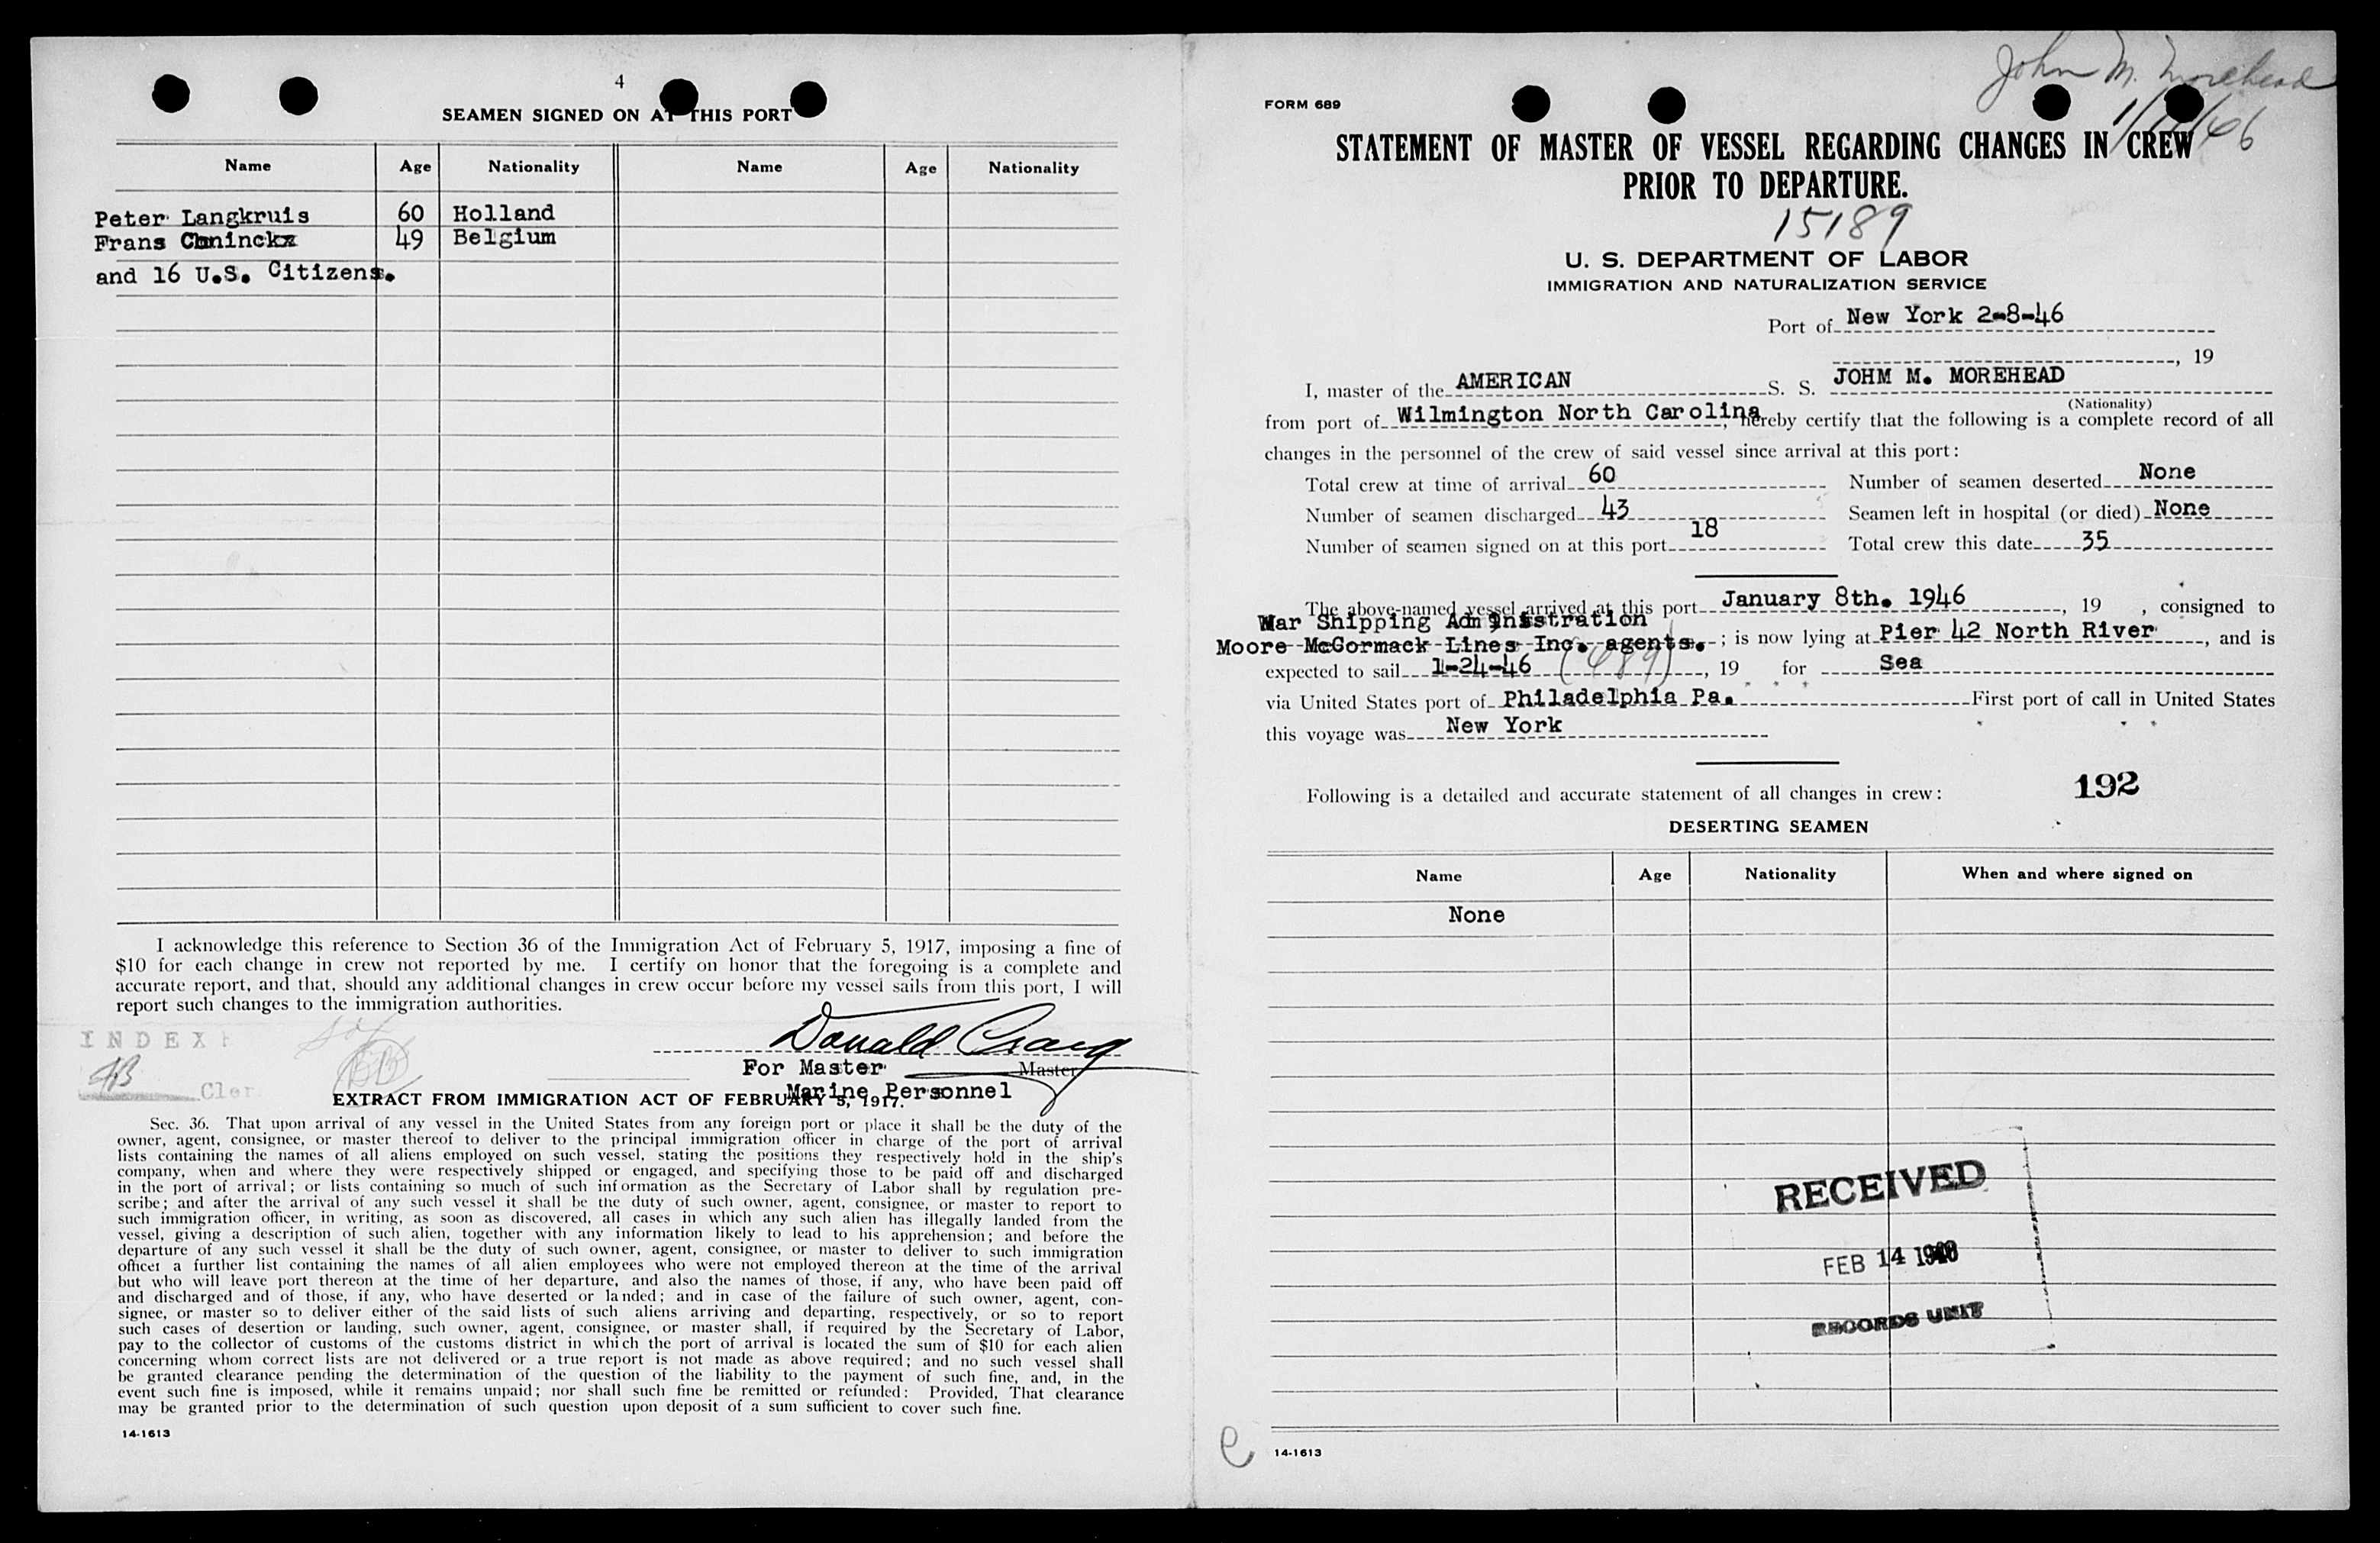 4
SEAMEN SIGNED ON AT THIS PORT
Name Age Nationality Name Age Nationality
Peter Langkruis 60 Holland
Frans Coninckx 49 Belgium
and 16 U.S. Citizens.
I acknowledge this reference to Section 36 of the Immigration Act of February 5, 1917, imposing a fine of
$10 for each change in crew not reported by me. I certify on honor that the foregoing is a complete and
accurate report, and that, should any additional changes in crew occur before my vessel sails from this port, I will
report such changes to the immigration authorities.
INDEX
Donald Craig
For Master Master
Cler
Marine Personnel
EXTRACT FROM IMMIGRATION ACT OF FEBRUARY 5, 1917.
Sec. 36. That upon arrival of any vessel in the United States from any foreign port or place it shall be the duty of the
owner, agent, consignee, or master thereof to deliver to the principal immigration officer in charge of the port of arrival
lists containing the names of all aliens employed on such vessel, stating the positions they respectively hold in the ship's
company, when and where they were respectively shipped or engaged, and specifying those to be paid off and discharged
in the port of arrival; or lists containing so much of such information as the Secretary of Labor shall by regulation pre-
scribe; and after the arrival of any such vessel it shall be the duty of such owner, agent, consignee, or master to report to
such immigration officer, in writing, as soon as discovered, all cases in which any such alien has illegally landed from the
vessel, giving a description of such alien, together with any information likely to lead to his apprehension; and before the
departure of any such vessel it shall be the duty of such owner, agent, consignee, or master to deliver to such immigration
officer a further list containing the names of all alien employees who were not employed thereon at the time of the arrival
but who will leave port thereon at the time of her departure, and also the names of those, if any, who have been paid off
and discharged and of those, if any, who have deserted or landed; and in case of the failure of such owner, agent, con-
signee, or master so to deliver either of the said lists of such aliens arriving and departing, respectively, or so to report
such cases of desertion or landing, such owner, agent, consignee, or master shall, if required by the Secretary of Labor,
pay to the collector of customs of the customs district in which the port of arrival is located the sum of $10 for each alien
concerning whom correct lists are not delivered or a true report is not made as above required; and no such vessel shall
be granted clearance pending the determination of the question of the liability to the payment of such fine, and, in the
event such fine is imposed, while it remains unpaid; nor shall such fine be remitted or refunded: Provided, That clearance
may be granted prior to the determination of such question upon deposit of a sum sufficient to cover such fine.
14-1613
John M. Morehead
FORM 689
STATEMENT OF MASTER OF VESSEL REGARDING CHANGES IN CREW
PRIOR TO DEPARTURE.
15189
U. S. DEPARTMENT OF LABOR
IMMIGRATION AND NATURALIZATION SERVICE
Port of New York 2-8-46
, 19
I, master of the AMERICAN S. S. JOHM M. MOREHEAD
(Nationality)
from port of Wilmington North Carolina, hereby certify that the following is a complete record of all
changes in the personnel of the crew of said vessel since arrival at this port:
Total crew at time of arrival 60 Number of seamen deserted None
Number of seamen discharged 43 Seamen left in hospital (or died) None
Number of seamen signed on at this port 18 Total crew this date 35
The above-named vessel arrived at this port January 8th. 1946, 19 , consigned to
War Shipping Administration
Moore McCormack Lines Inc. agents. ; is now lying at Pier 42 North River, and is
expected to sail 1-24-46 (489), 19 for Sea
via United States port of Philadelphia Pa. First port of call in United States
this voyage was New York
Following is a detailed and accurate statement of all changes in crew:
192
DESERTING SEAMEN
Name Age Nationality When and where signed on
None
RECEIVED
FEB 14 1946
RECORDS UNIT
e
14-1613